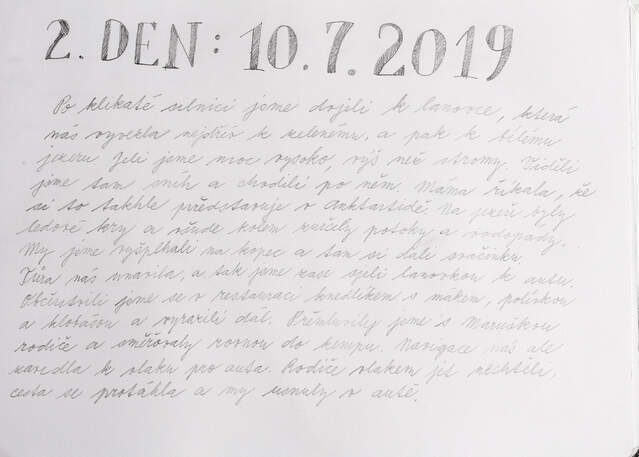 2. DEN: 10.7.2019
Po klikaté silnici jsme dojeli k lanovce, která
nás vyvekla nejdřív k zelenému, a pak k bílému
jezeru. Jeli jsme moc vysoko, výš než stromy. Viděli
jsme tam sníh a chodili po něm. Máma říkala, že
si to takhle představuje v Anktartidě. Na jezeře byly
ledové kry a všude kolem hučely potoky a vodopády.
My jsme vyšplhali na kopec a tam si dali svačinku.
Túra nás unavila, a tak jsme zase sjeli lanovkou k autu.
Občerstvili jsme se v restauraci knedlíkem s mákem, polívkou
a klobásou a vyrazili dál. Přemluvily jsme s Maruškou
rodiče a směřovaly rovnou do kempu. Navigace nás ale
zavedla k vlaku pro auta. Rodiče vlakem jet nechtěli,
cesta se protáhla a my usnuly v autě.